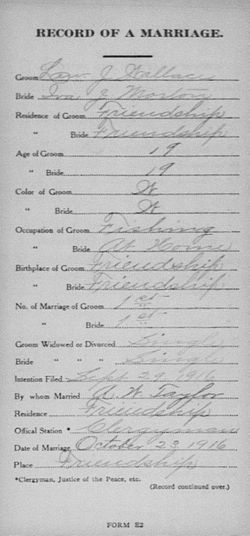 RECORD OF A MARRIAGE.
Groom J Wallace
Bride Iva J Morton
Residence of Groom Friendship
" Bride Friendship
Age of Groom 19
" Bride 19
Color of Groom W
" Bride W
Occupation of Groom Fishing
" Bride At Home
Birthplace of Groom Friendship
" Bride Friendship
No. of Marriage of Groom 1st
" Bride 1st
Groom Widowed or Divorced Single
Bride " " " Single
Intention Filed Sept 29 1916
By whom Married W Taylor
Residence Friendship
Offical Station * Clergyman
Date of Marriage October 23 1916
Place Friendship
*Clergyman, Justice of the Peace, etc.
(Record continued over.)
FORM E2